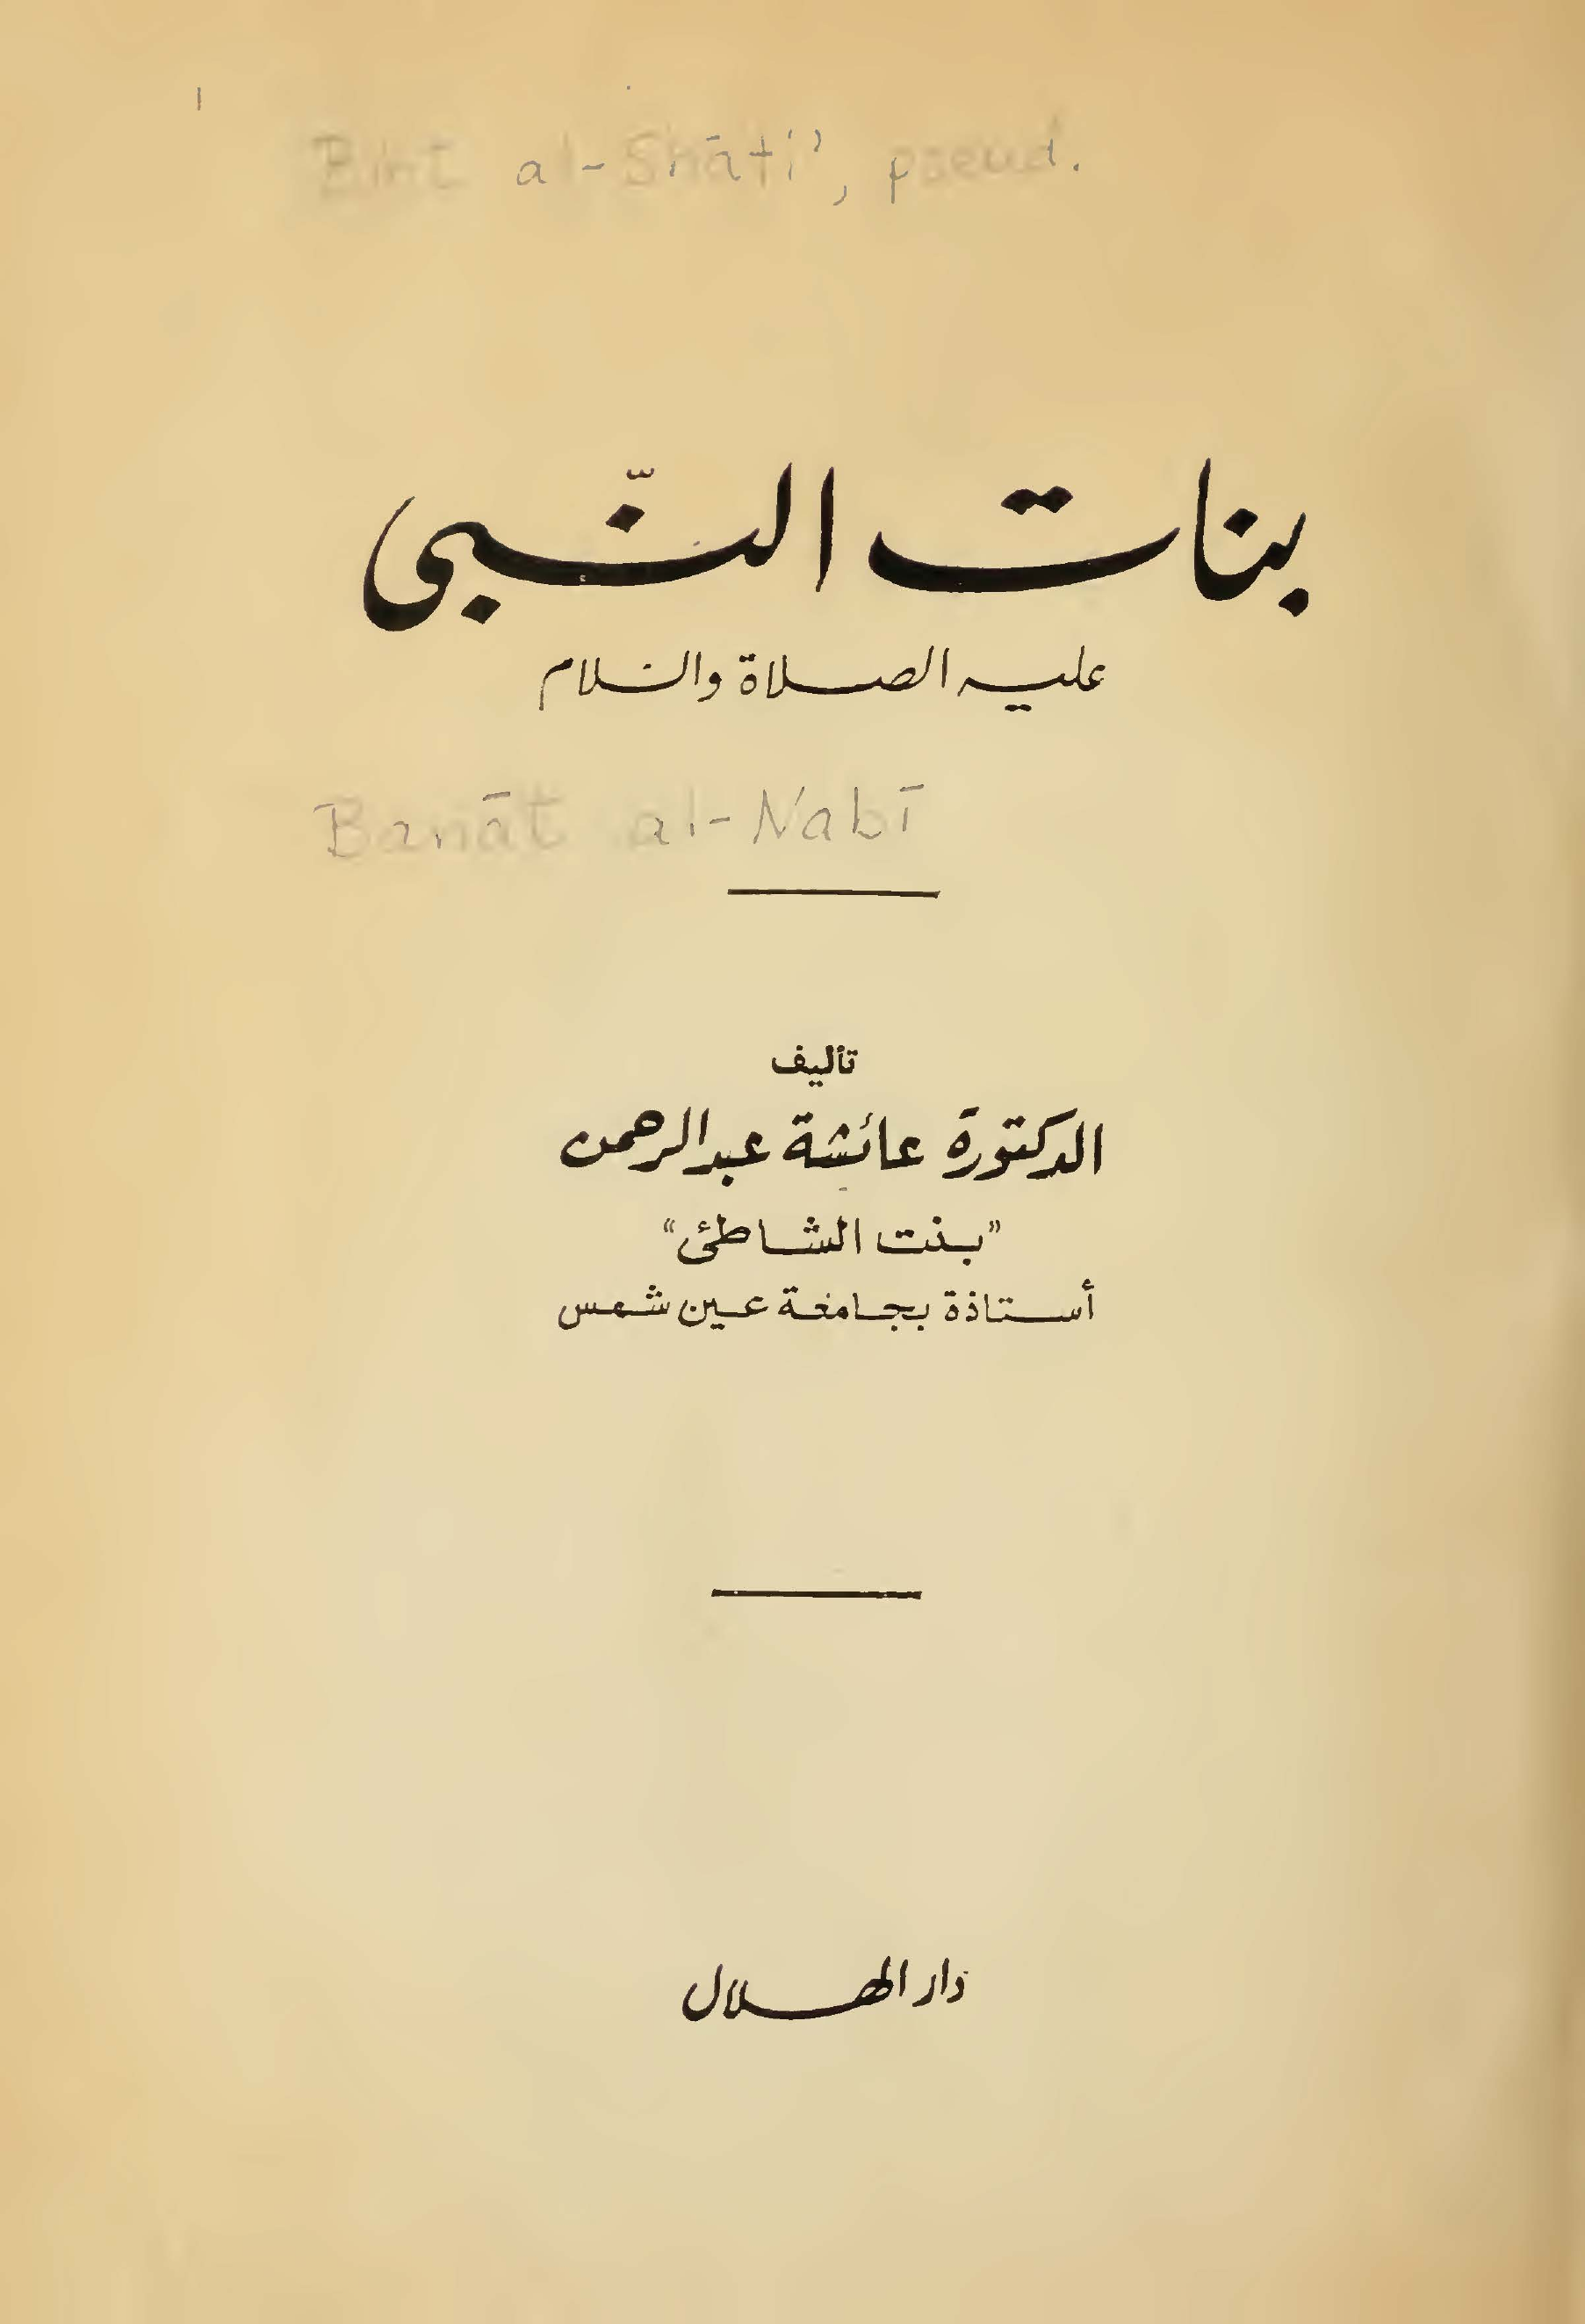 Bint al-Shāti', pseud.
بنات النّبى
عليه الصلاة والسلام
Banāt al-Nabī
تأليف
الدكتورة عائشة عبدالرحمن
"بنت الشاطئ"
أستاذة بجامعة عين شمس
دار الهلال